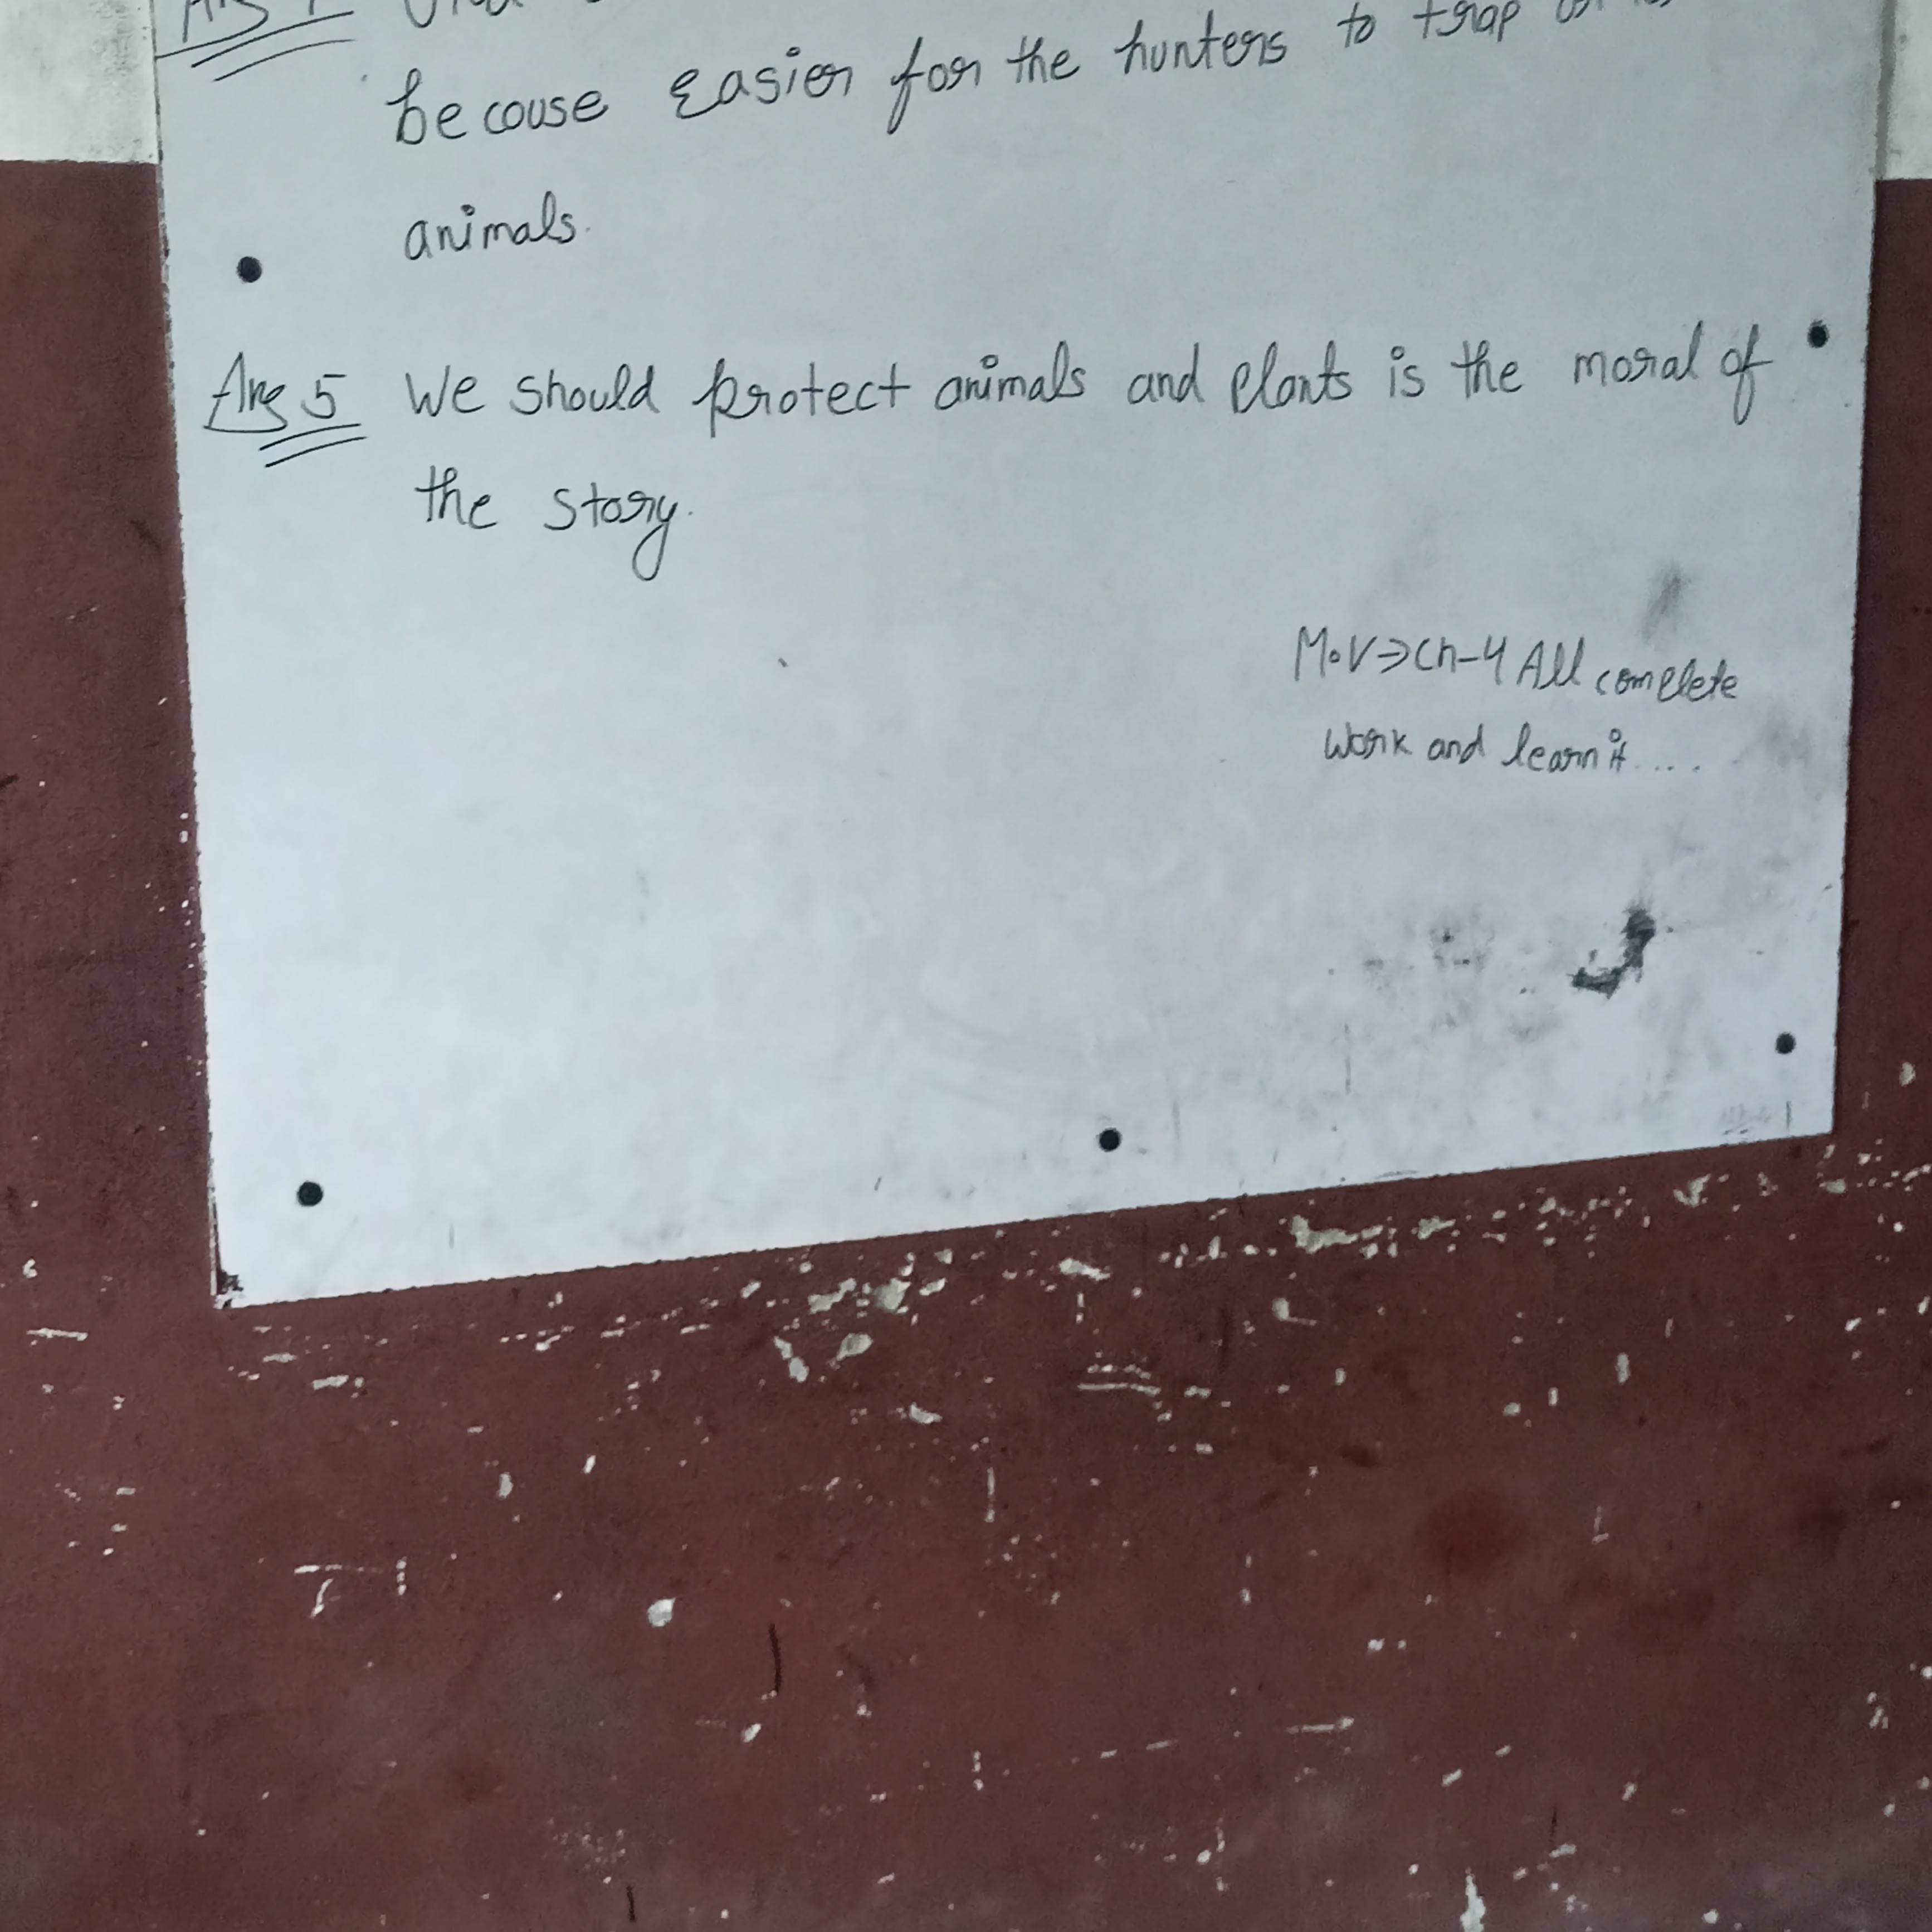 be couse easier for the hunters to trap
animals.
Ans 5 We should protect animals and plants is the moral of
the story.
M.V⇒Ch-4 All complete
work and learn it....